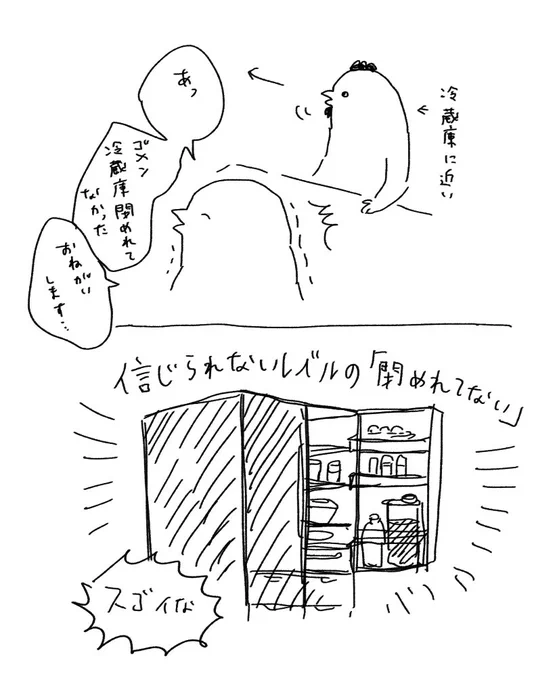 ←冷蔵庫に近い
あっ
ゴメン
冷蔵庫閉めれて
なかった
おねがい
します…
信じられないレベルの「閉めれてない」
スゴイな